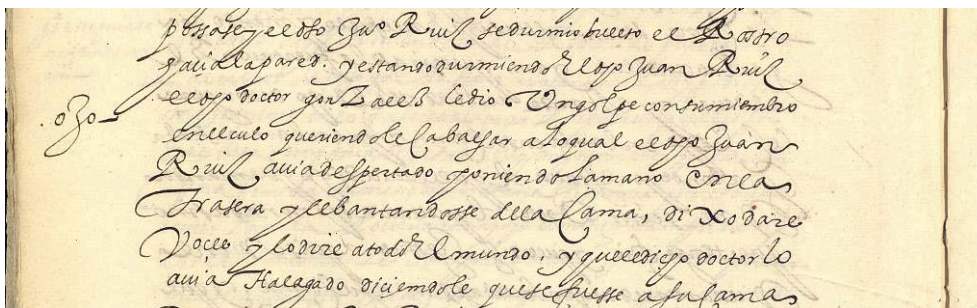 possase y el dho Ju° Ruiz se durmio buelto el Rostro
hacia la pared. y estando durmiendo el dho Juan Ruiz
el dho doctor gonzalez le dio Un golpe con su miembro
ojo en el culo queriendole Cabalgar a lo qual el dho Juan
Ruiz avia despertado poniendo la mano en la
Trasera y lebantandosse de la Cama, dixo dare
Voces y lo dire a todo el mundo. y que el dicho doctor lo
avia Halagado diciendole que se fuesse a su Cama